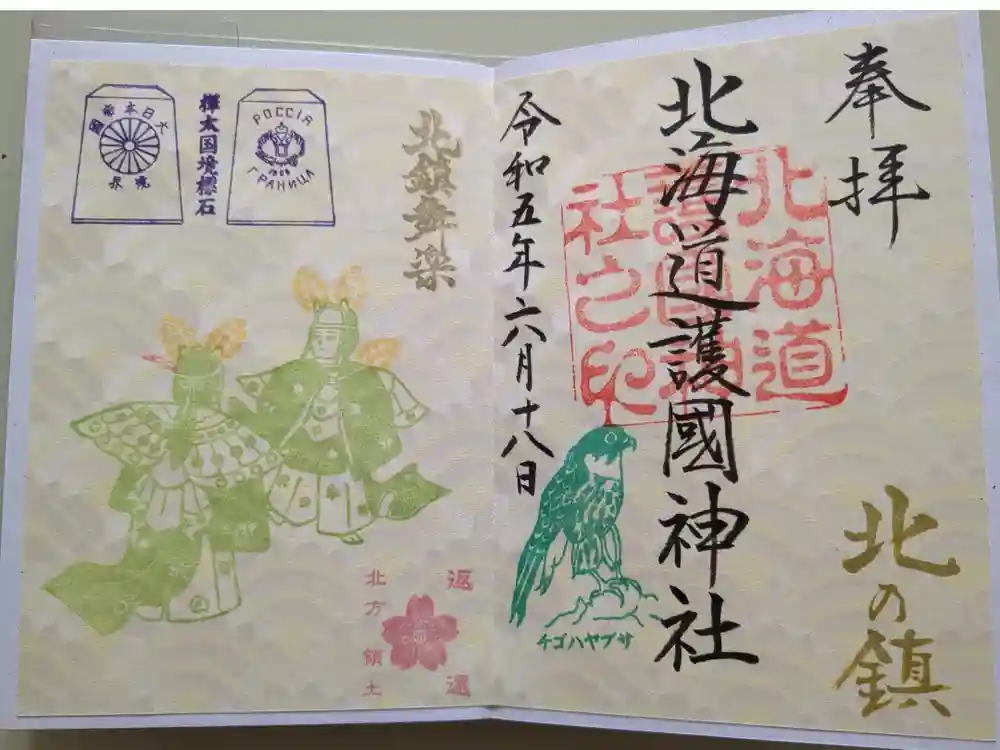 奉拝
北海道護國神社
北の鎮
北海道
護国神
社之印
令和五年六月十八日
チゴハヤブサ
北鎮舞楽
樺太国境標石
大日本帝國
境界
РОССІЯ
1906
ГРАНИЦА
返還
北方領土